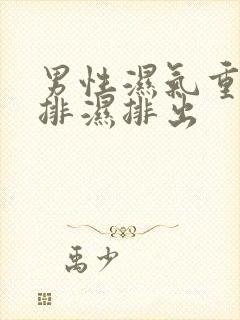 男性濕氣重
排濕排出
禹少